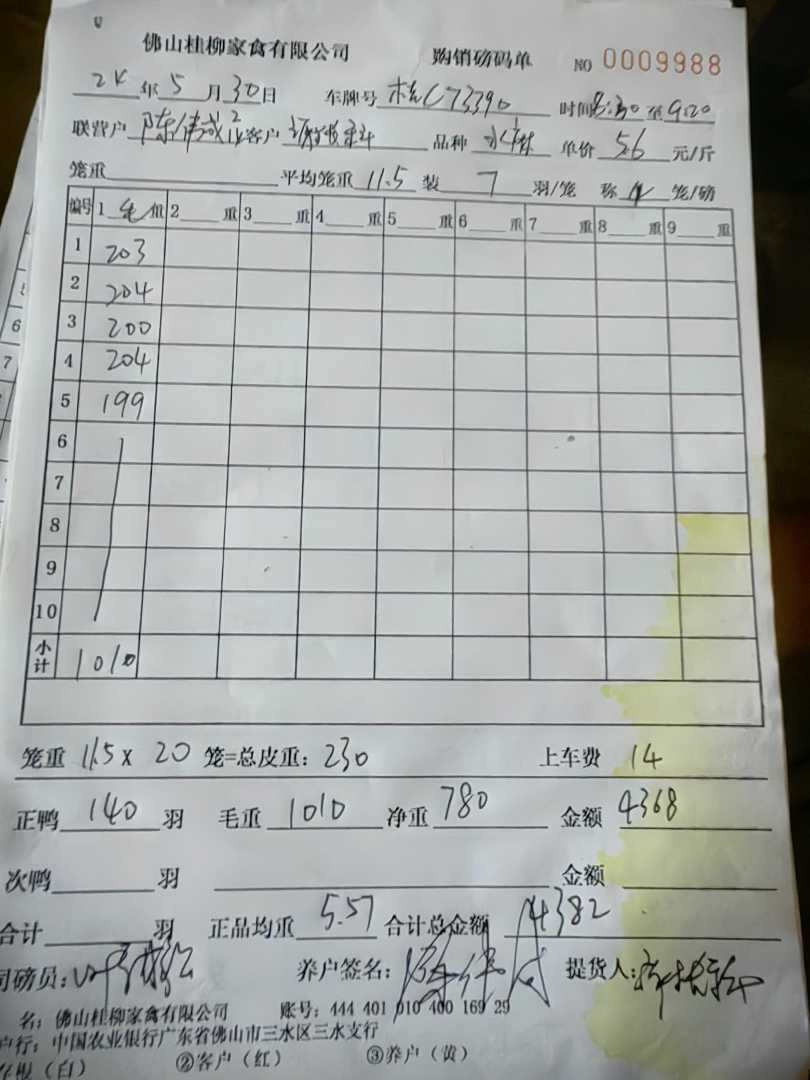 佛山桂柳家禽有限公司 购销磅码单 NO 0009988
24 年 5 月 30 日 车牌号 桂C73390 时间 8:30 至 9:20
联营户 陈伟成 客户 品种 单价 5.6 元/斤
笼重 平均笼重 11.5 装 7 羽/笼 称 4 笼/磅
编号 1 毛 重 2 重 3 重 4 重 5 重 6 重 7 重 8 重 9 重
1 203
2 204
3 200
4 204
5 199
6
7
8
9
10
小计 1010
笼重 11.5 x 20 笼=总皮重: 230 上车费 14
正鸭 140 羽 毛重 1010 净重 780 金额 4368
次鸭 羽 金额
合计 羽 正品均重 5.57 合计总金额 4382
司磅员: 养户签名: 提货人:
名: 佛山桂柳家禽有限公司 账号: 444 401 010 400 169 29
户行: 中国农业银行广东省佛山市三水区三水支行
存根(白) ②客户(红) ③养户(黄)